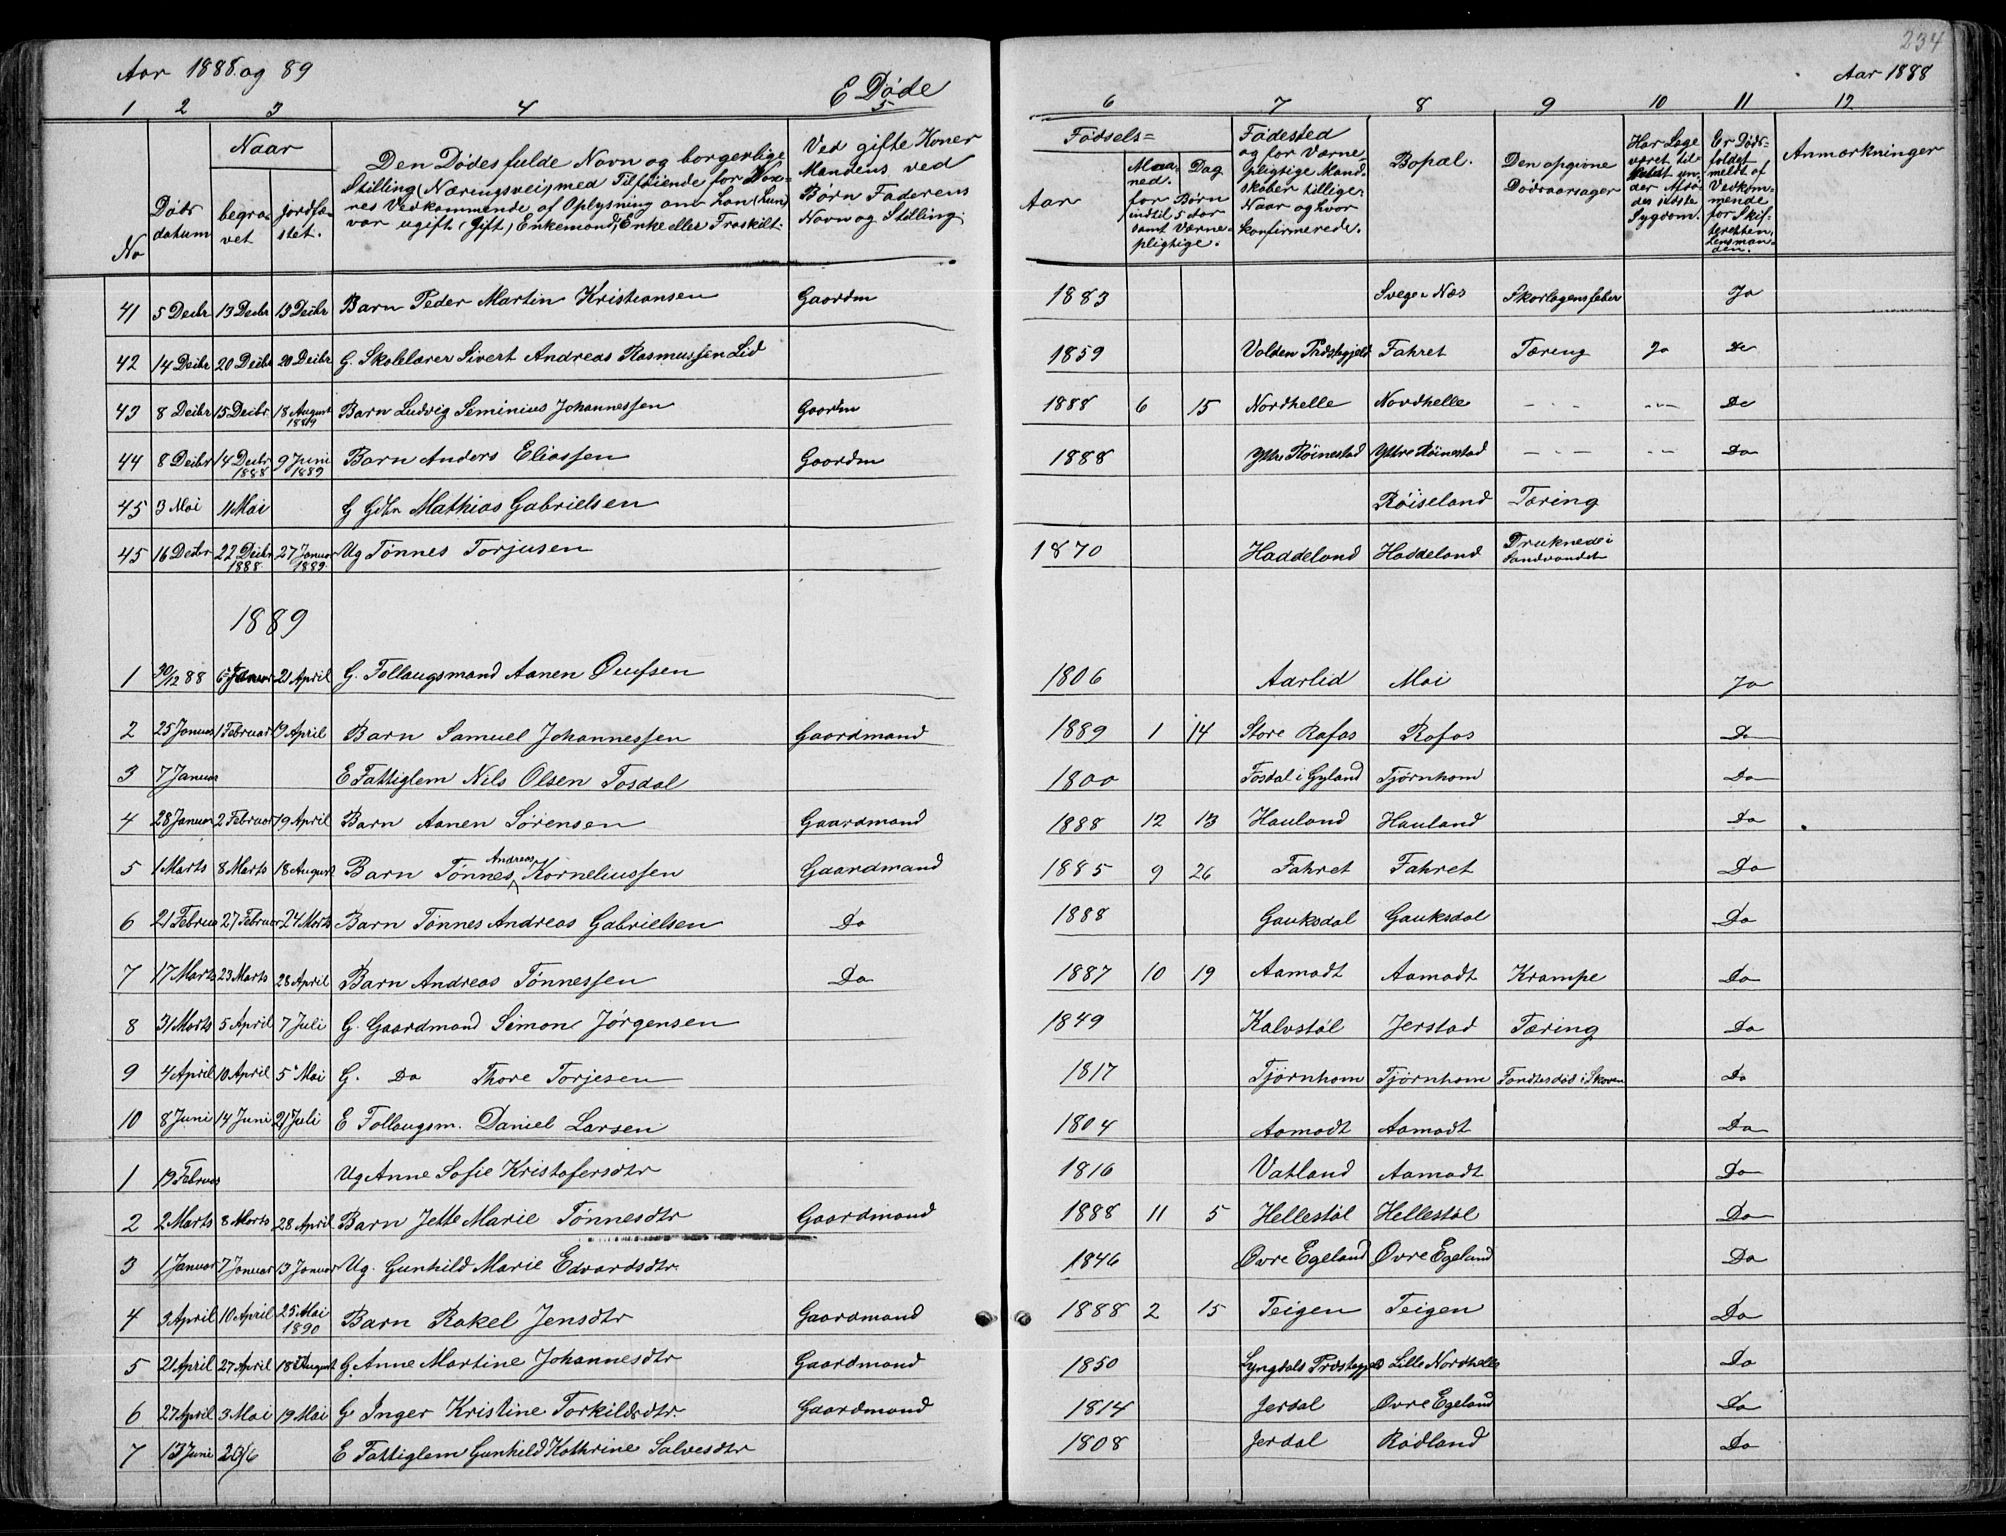 Aar 1888 og 89
E Døde
234
Aar 1888
1 2 3 4 5 6 7 8 9 10 11 12
No
Døds datum
Naar
begravet
jordfæstet.
Den Dødes fulde Navn og borgerlige
Stilling (Næringsvei) med Tilføiende for Voxnes
Vedkommende af Oplysning om han (hun)
var ugift, Gift, Enkemand, Enke eller Fraskilt.
Ved gifte Koner
Mandens ved
Børn Faderens
Navn og Stilling.
Fødsels=
Aar
Maaned. Dag
for Børn
indtil 5 Aar
samt Værnepligtige.
Fødested
og for Værnepligtige
Mandskaber tillige
Naar og hvor
konfirmerede.
Bopæl.
Den opgivne
Dødsaarsager
Har Læge
været tilkaldt
under Afdødes
sidste
Sygdom.
Er Dødsfaldet
meldt af
Vedkommende
for Skifteretten,
Lensmanden.
Anmærkninger
41 5 Decbr 13 Decbr 13 Decbr Barn Peder Martin Kristiansen Gaardm 1883 Svege i Næs Skarlagensfeber Ja
42 14 Decbr 20 Decbr 20 Decbr G. Skolelærer Sivert Andreas Rasmussen Lid 1859 Volden Præstegjeld Fahret Tæring Ja Do
43 8 Decbr 15 Decbr 18 August 1889 Barn Ludvig Seminius Johannessen Gaardm 1888 6 15 Nordhelle Nordhelle - - - - - - Do
44 8 Decbr 14 Decbr 1888 9 Juni 1889 Barn Anders Eliassen Gaardm 1888 Yttre Røinestad Yttre Røinestad - - - - - Do
45 3 Mai 11 Mai G Gdbr Mathias Gabrielsen Røiseland Tæring
45 16 Decbr 22 Decbr 1888 27 Januar 1889 Ug Tønnes Torjusen 1870 Haddeland Haddeland Druknede i Sandvandet
1889
1 30/12 88 6 Januar 21 April G. Follaugsmand Aanen Oulfsen 1806 Aarlid Moi Ja
2 25 Januar 1 Februar 19 April Barn Samuel Johannessen Gaardmand 1889 1 14 Store Rafos Rafos Do
3 7 Januar E Fattiglem Nils Olsen Tosdal 1800 Tosdal i Gyland Tjørnhom Do
4 28 Januar 2 Februar 19 April Barn Aanen Sørensen Gaardmand 1888 12 13 Hauland Hauland Do
5 1 Marts 8 Marts 18 August Barn Tønnes Andreas Korneliussen Gaardmand 1885 9 26 Fahret Fahret Do
6 21 Februar 27 Februar 24 Marts Barn Tønnes Andreas Gabrielsen Do 1888 Gauksdal Gauksdal Do
7 17 Marts 23 Marts 28 April Barn Andreas Tønnessen Do 1887 10 19 Aamodt Aamodt Krampe Do
8 31 Marts 5 April 7 Juli G. Gaardmand Simon Jørgensen 1849 Kalvstøl Jerstad Tæring Do
9 4 April 10 April 5 Mai G. Do Thore Torjesen 1817 Tjørnhom Tjørnhom Fandtes død i Skoven Do
10 8 Juni 14 Juni 21 Juli E Follaugsm. Daniel Larsen 1804 Aamodt Aamodt Do
1 19 Februar Ug Anne Sofie Kristofersdtr 1816 Vatland Aamodt Do
2 2 Marts 8 Marts 28 April Barn Jette Marie Tønnesdtr Gaardmand 1888 11 5 Hellestøl Hellestøl Do
3 1 Januar 7 Januar 13 Januar Ug. Gunhild Marie Edvardsdtr. 1846 Øvre Egeland Øvre Egeland Do
4 3 April 10 April 25 Mai 1890 Barn Rakel Jensdtr Gaardmand 1888 2 15 Teigen Teigen Do
5 21 April 27 April 18 August G. Anne Martine Johannesdtr Gaardmand 1850 Lyngdals Præstegjeld Lille Nordhelle Do
6 27 April 3 Mai 19 Mai G Inger Kristine Torkildsdtr. Gaardmand 1814 Jerdal Øvre Egeland Do
7 13 Juni 20/6 E Fattiglem Gunhild Kathrine Salvesdtr 1808 Jerdal Rødland Do